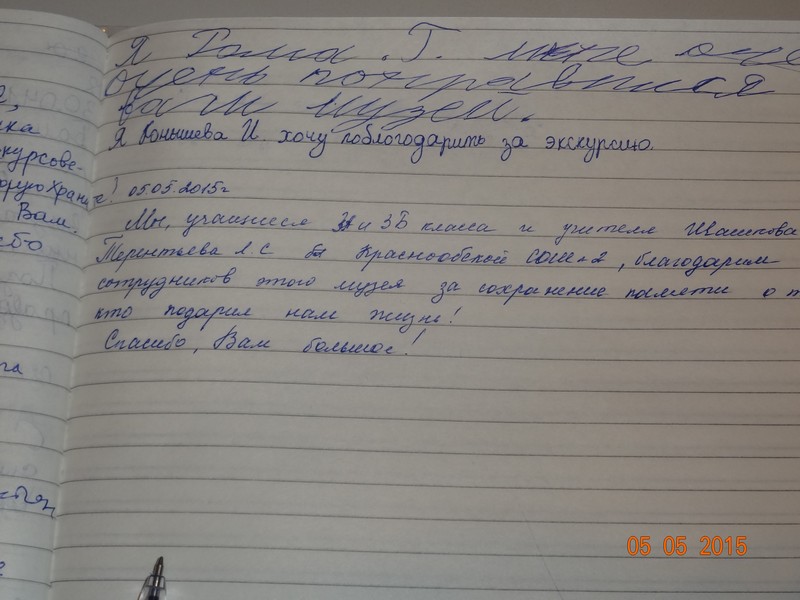 Я Рома . Г. мне оче
очень понравился
ваш музей.
Я Конышева И. хочу поблогодарить за экскурсию.
05.05.2015г
Мы, учащиеся 3А и 3Б класса и учителя Шашкова
Терентьева Л.С Краснообской СОШ №2, благодарим
сотрудников этого музея за сохранение памяти о т
кто подарил нам жизнь!
Спасибо, Вам большое!
ка
курсове-
Вам.
05 05 2015